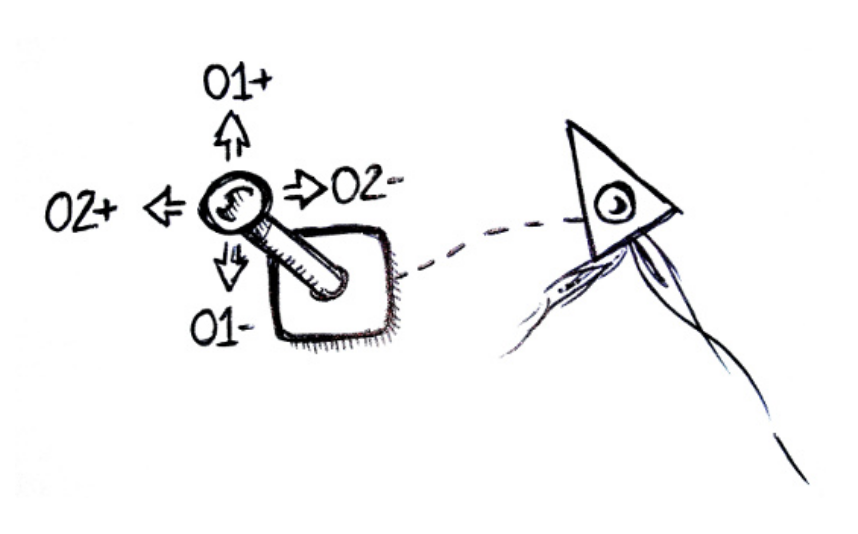 O1+
O2+
O2-
O1-